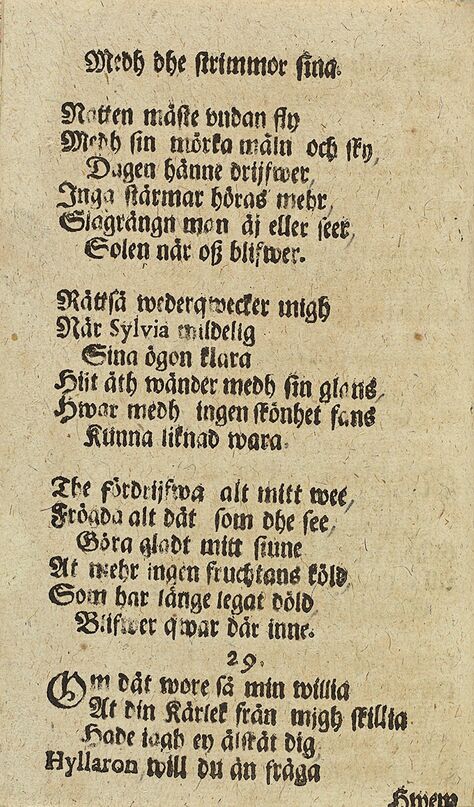 Medh dhe strimmor sina.
Natten måste vndan fly
Medh sin mörka måln och sky,
Dagen hänne drijfwer,
Inga stärmar höras mehr,
Slagrängn man äj eller seer,
Solen når oß blifwer.
Rättså wederqwecker migh
När Sylvia mildelig
Sina ögon klara
Hijt åth wänder medh sin glans,
Hwar medh ingen skönhet fans
Kunna liknad wara.
The fördrijfwa alt mitt wee,
Frögda alt dät som dhe see,
Göra gladt mitt sinne
At mehr ingen fruchtans köld
Som har länge legat döld
Blifwer qwar där inne.
29.
Om dät wore så min willia
At din Kärlek från migh skillia
Hade iagh ey älskåt dig
Hyllaron will du än fråga
Hwem